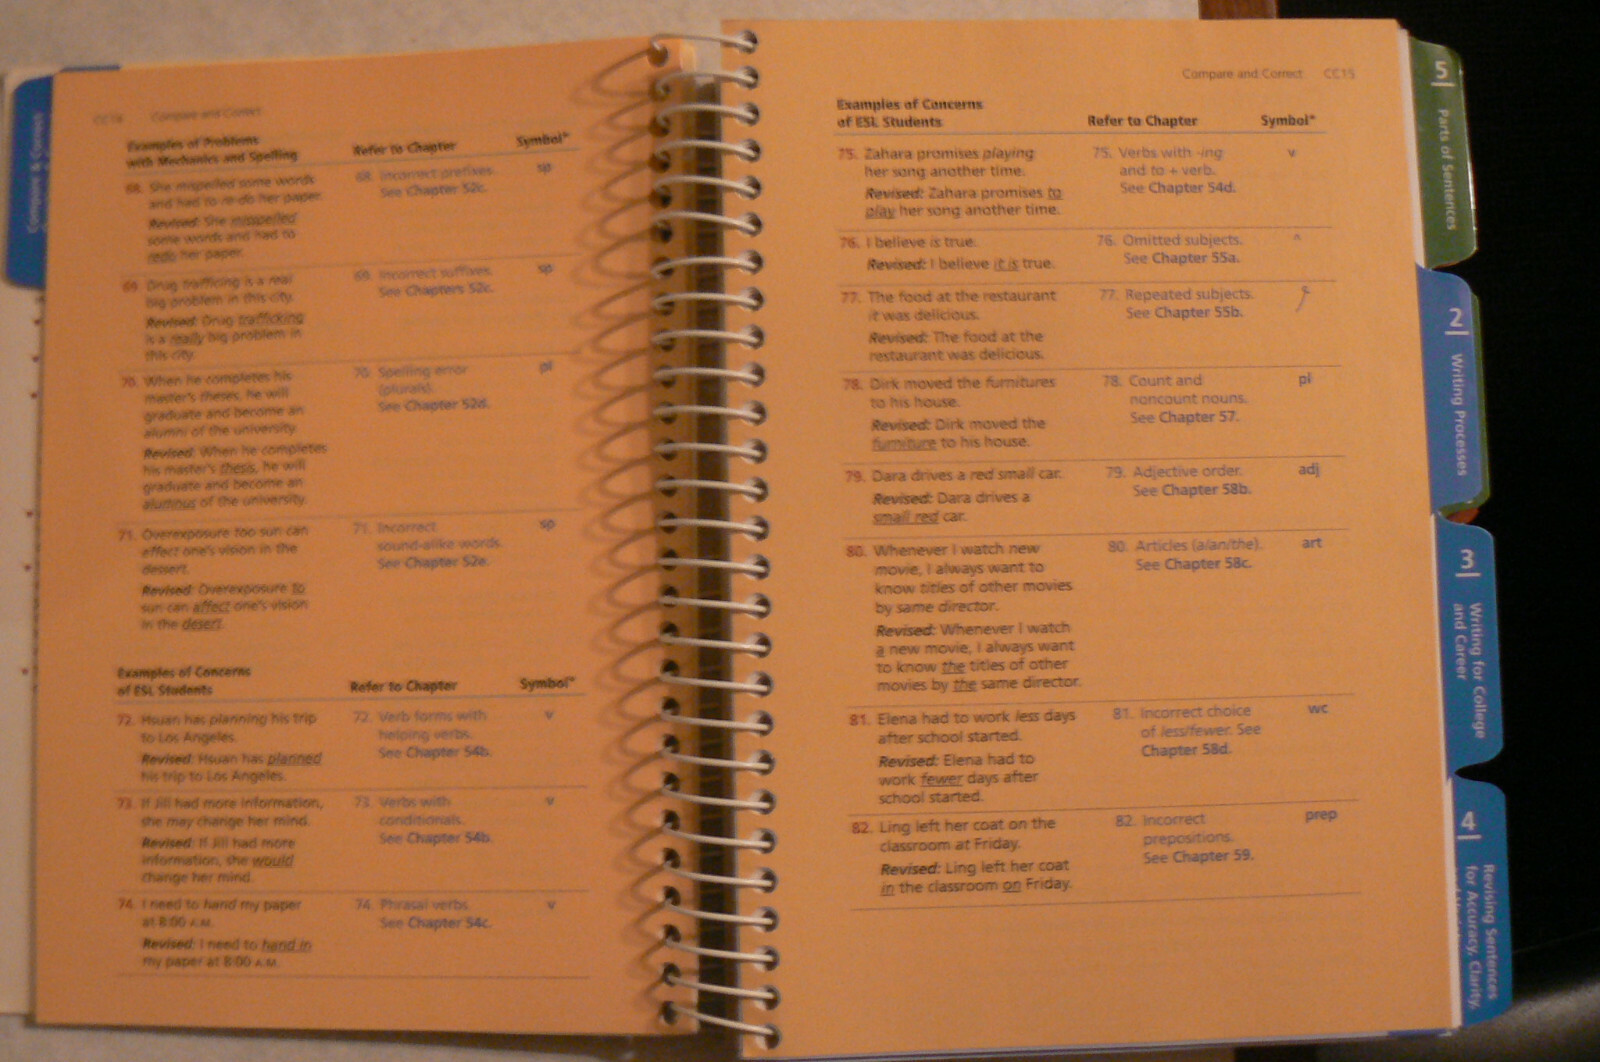 Compare & Correct
CC14 Compare and Correct
Examples of Problems
with Mechanics and Spelling
Refer to Chapter
Symbol*
68. She mispelled some words
and had to re-do her paper.
Revised: She misspelled
some words and had to
redo her paper.
68. Incorrect prefixes.
See Chapter 52c.
sp
69. Drug trafficing is a real
big problem in this city.
Revised: Drug trafficking
is a really big problem in
this city.
69. Incorrect suffixes.
See Chapters 52c.
sp
70. When he completes his
master's theses, he will
graduate and become an
alumni of the university.
Revised: When he completes
his master's thesis, he will
graduate and become an
alumnus of the university.
70. Spelling error
(plurals).
See Chapter 52d.
pl
71. Overexposure too sun can
effect one's vision in the
dessert.
Revised: Overexposure to
sun can affect one's vision
in the desert.
71. Incorrect
sound-alike words.
See Chapter 52e.
sp
Examples of Concerns
of ESL Students
Refer to Chapter
Symbol*
72. Hsuan has planning his trip
to Los Angeles.
Revised: Hsuan has planned
his trip to Los Angeles.
72. Verb forms with
helping verbs.
See Chapter 54b.
v
73. If Jill had more information,
she may change her mind.
Revised: If Jill had more
information, she would
change her mind.
73. Verbs with
conditionals.
See Chapter 54b.
v
74. I need to hand my paper
at 8:00 A.M.
Revised: I need to hand in
my paper at 8:00 A.M.
74. Phrasal verbs.
See Chapter 54c.
v
Compare and Correct CC15
Examples of Concerns
of ESL Students
Refer to Chapter
Symbol*
75. Zahara promises playing
her song another time.
Revised: Zahara promises to
play her song another time.
75. Verbs with -ing
and to + verb.
See Chapter 54d.
v
76. I believe is true.
Revised: I believe it is true.
76. Omitted subjects.
See Chapter 55a.
^
77. The food at the restaurant
it was delicious.
Revised: The food at the
restaurant was delicious.
77. Repeated subjects.
See Chapter 55b.
78. Dirk moved the furnitures
to his house.
Revised: Dirk moved the
furniture to his house.
78. Count and
noncount nouns.
See Chapter 57.
pl
79. Dara drives a red small car.
Revised: Dara drives a
small red car.
79. Adjective order.
See Chapter 58b.
adj
80. Whenever I watch new
movie, I always want to
know titles of other movies
by same director.
Revised: Whenever I watch
a new movie, I always want
to know the titles of other
movies by the same director.
80. Articles (a/an/the).
See Chapter 58c.
art
81. Elena had to work less days
after school started.
Revised: Elena had to
work fewer days after
school started.
81. Incorrect choice
of less/fewer. See
Chapter 58d.
wc
82. Ling left her coat on the
classroom at Friday.
Revised: Ling left her coat
in the classroom on Friday.
82. Incorrect
prepositions.
See Chapter 59.
prep
5
Parts of Sentences
2
Writing Processes
3
Writing for College
and Career
4
Revising Sentences
for Accuracy, Clarity,